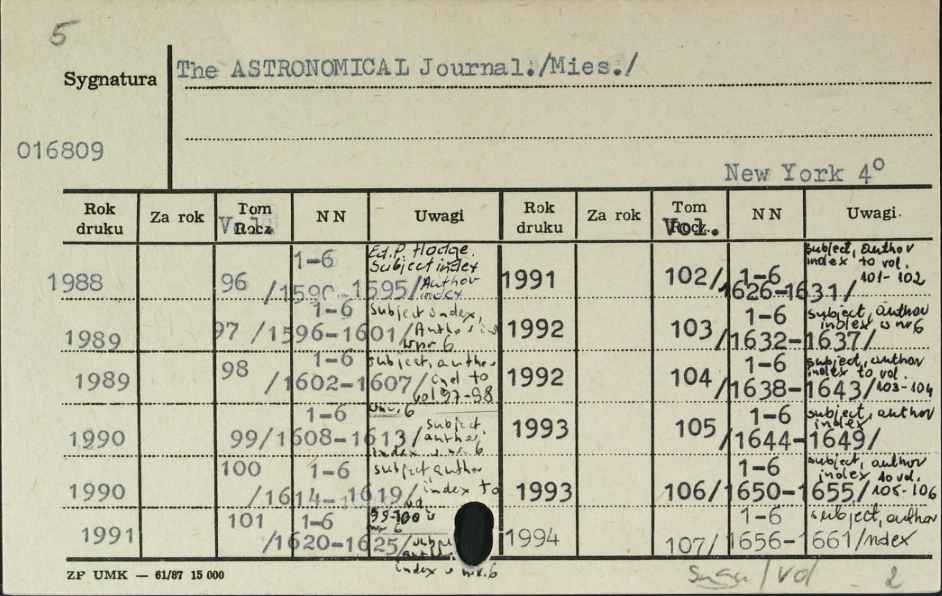 5
Sygnatura The ASTRONOMICAL Journal./Mies./
016809
New York 4°
Rok druku Za rok Tom Vol. Rocz. N N Uwagi Rok druku Za rok Tom Vol. N N Uwagi.
1988 96 1-6 /1590-1595/ Ed. P. Hodge. Subject index Author index
1989 97 1-6 /1596-1601/ Subject index, Author w nr 6
1989 98 1-6 /1602-1607/ subject, author ind to vol 97-98 w nr. 6
1990 99 1-6 /1608-1613/ subject. author index w nr. 6
1990 100 1-6 /1614-1619/ subject author index to vol 99-100 w nr 6
1991 101 1-6 /1620-1625/ subject author index w nr. 6
1991 102 1-6 /1626-1631/ subject, author index to vol. 101-102
1992 103 1-6 /1632-1637/ subject, author index w nr 6
1992 104 1-6 /1638-1643/ subject, author index to vol. 103-104
1993 105 1-6 /1644-1649/ subject, author index
1993 106 1-6 /1650-1655/ subject, author index to vol. 105-106
1994 107 1-6 /1656-1661/ subject, author index
ZP UMK — 61/87 15 000
/ vol - 2